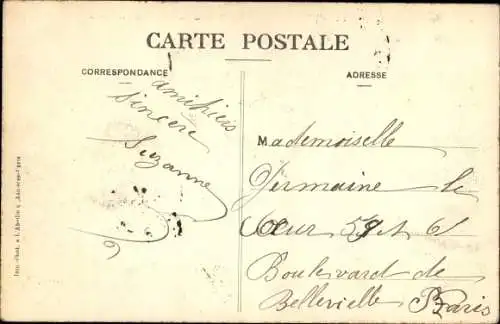 CARTE POSTALE
CORRESPONDANCE
ADRESSE
amitiers
sincère
Suzanne
Mademoiselle
Germaine le
Cœur 59 et 61
Boulevard de
Belleville Paris